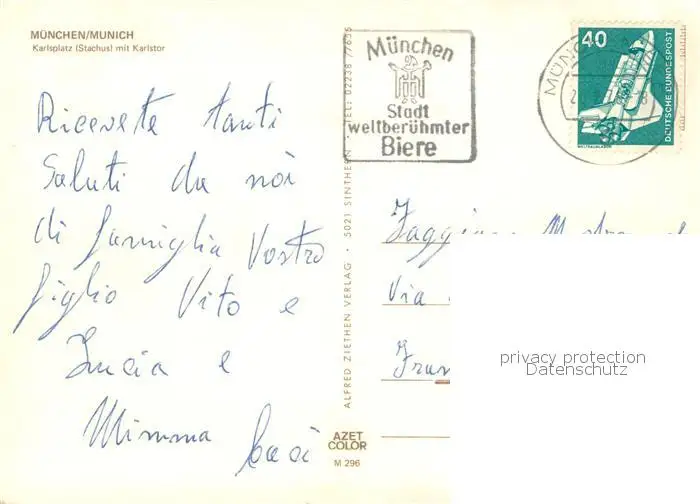 MÜNCHEN/MUNICH
Karlsplatz (Stachus) mit Karlstor
Ricevete tanti
Saluti da noi
di famiglia Vostro
figlio Vito e
Lucia e
Mimma baci
ALFRED ZIETHEN VERLAG · 5021 SINTHERN · TEL: 02238 / 7656
AZET
COLOR
M 296
München
Stadt
weltberühmter
Biere
MÜN
40
DEUTSCHE BUNDESPOST
WELTRAUMLABOR
Via
privacy protection
Datenschutz